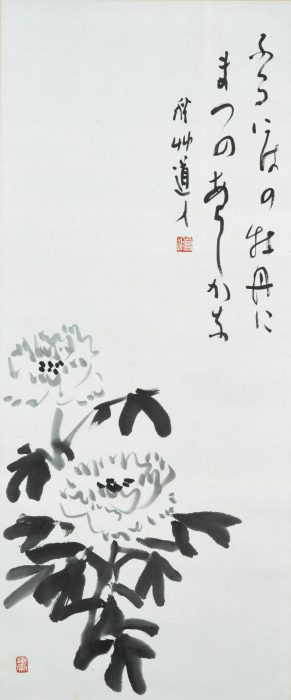 ふるにはの牡丹に
まつのあらしかな
秋艸道人